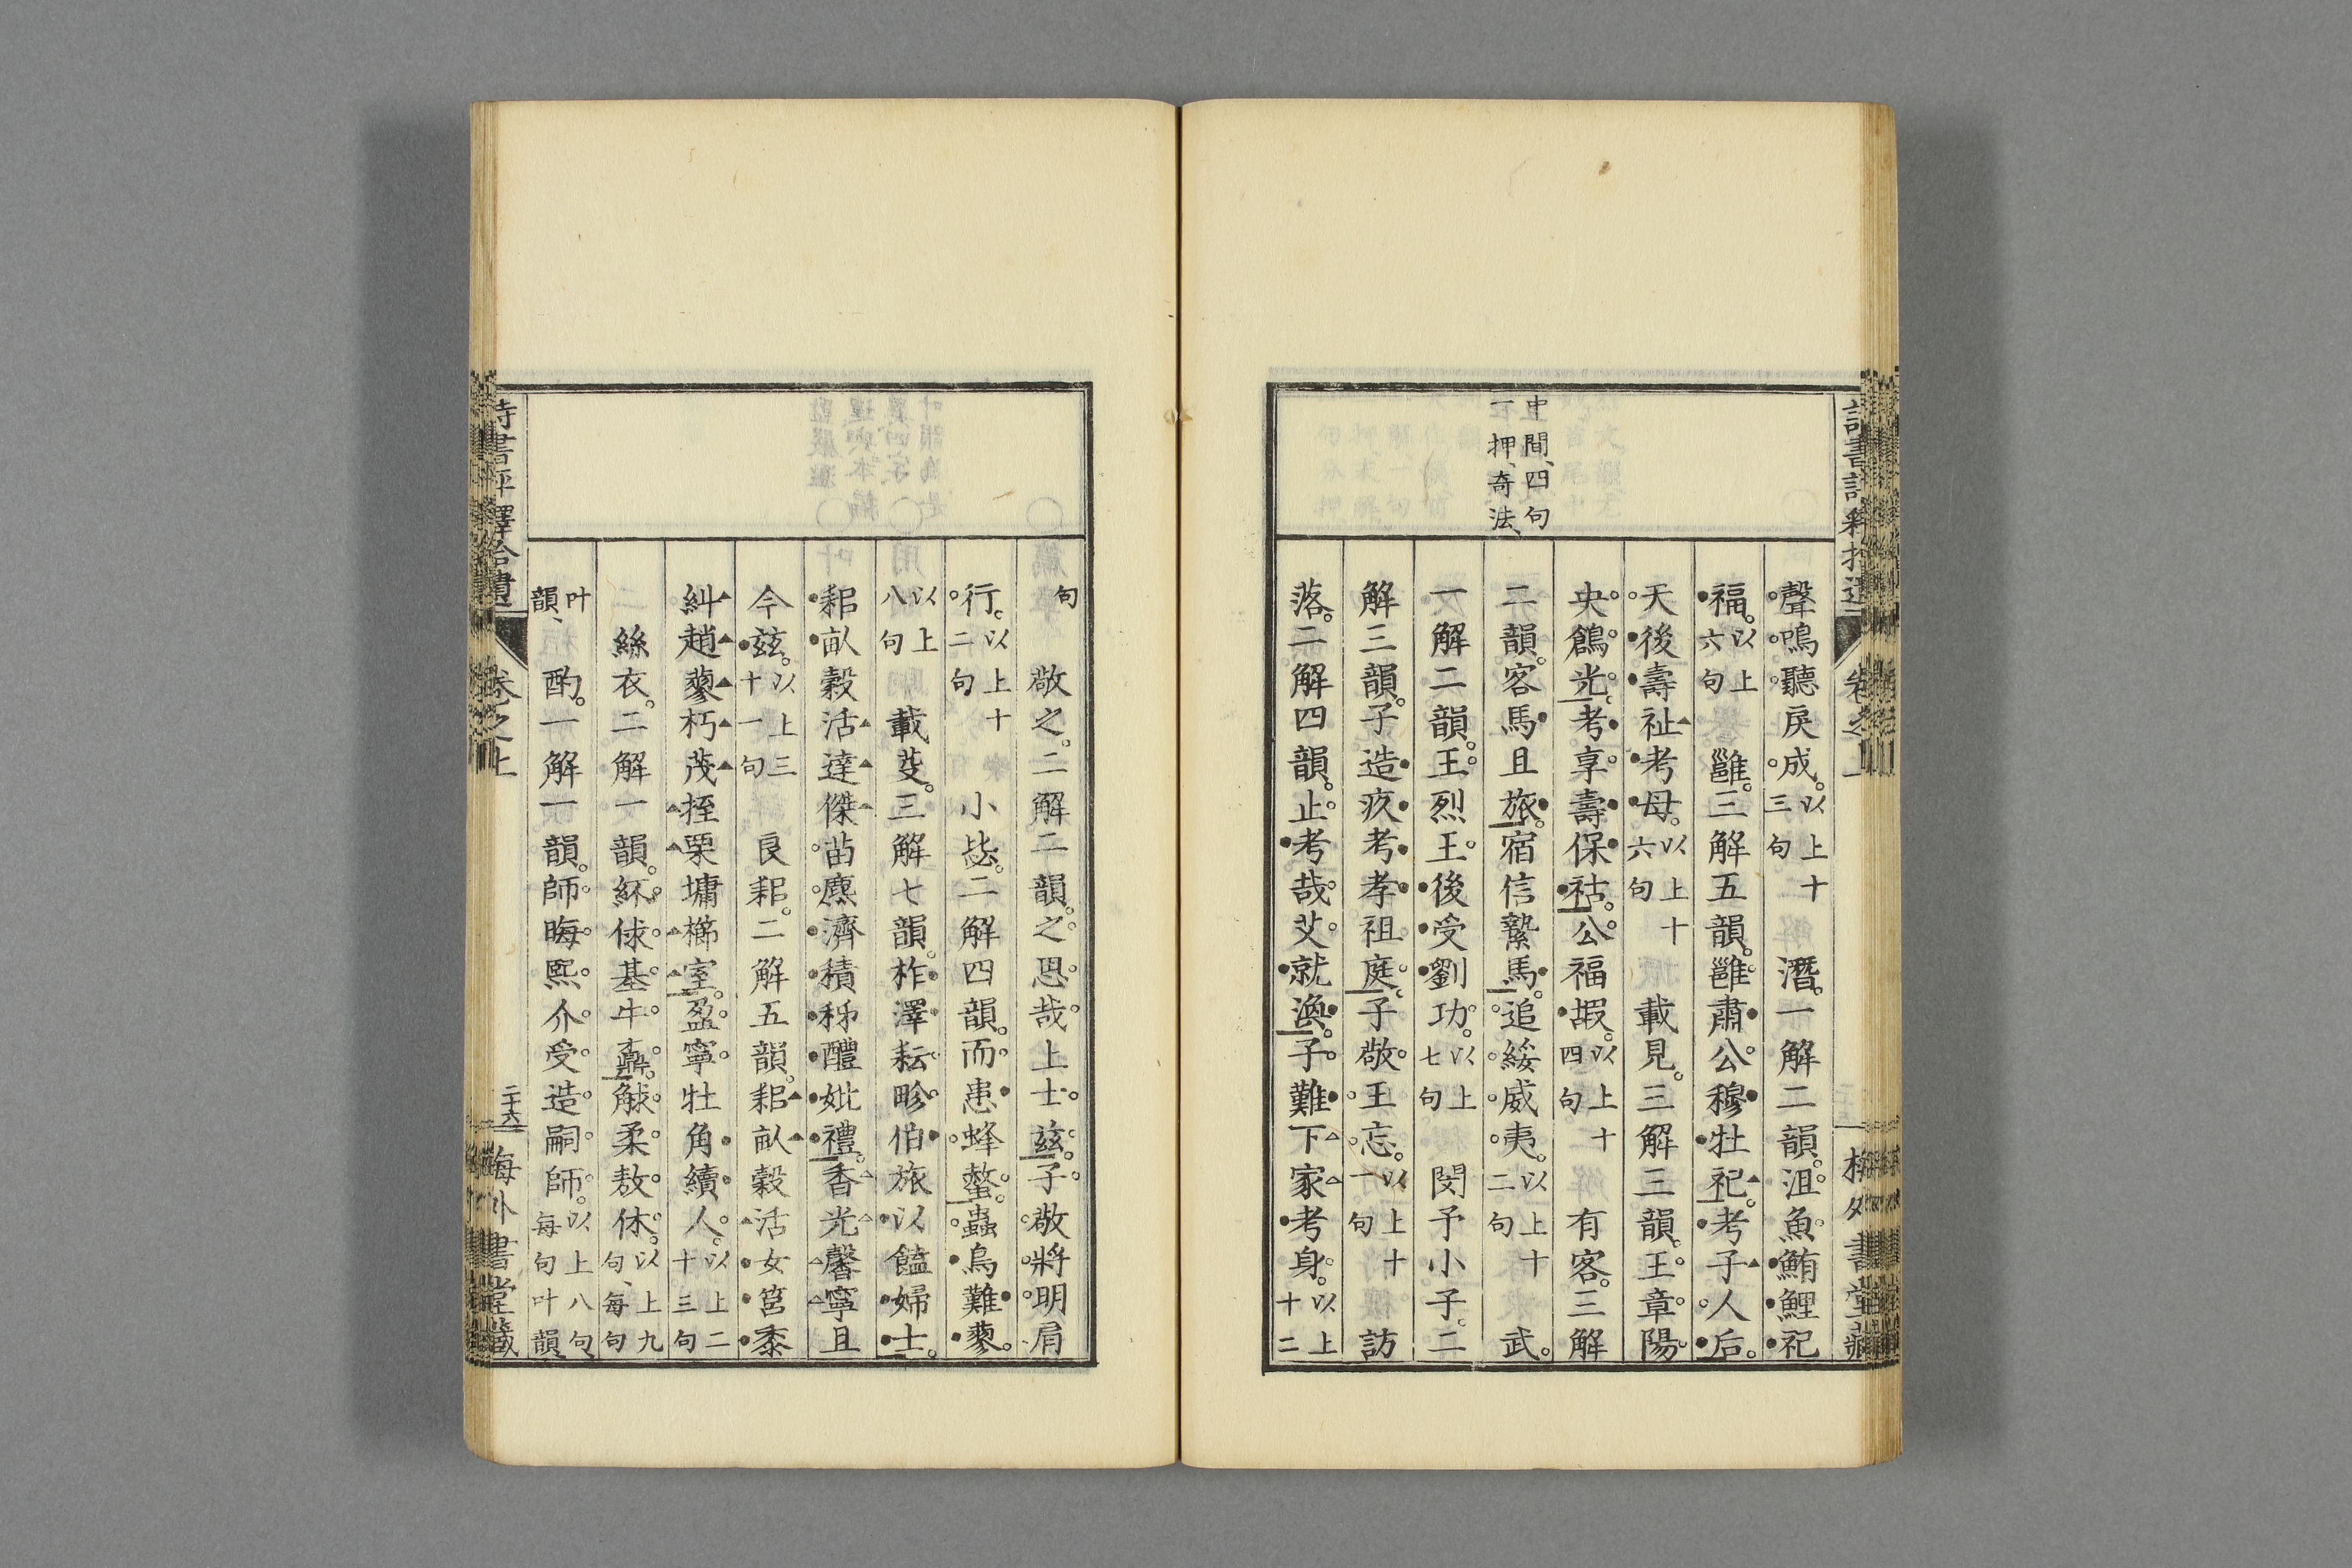 中間、四句
一押、奇法、
聲鳴聽戾成。以上十三句　潛。一解二韻。沮魚鮪鯉祀
福。以上六句　雝。三解五韻。雝肅公穆牡祀。考子人后。
天後壽祉考母。以上十六句　載見。三解三韻。王章陽
央鶬光。考享壽保祜。公福嘏。以上十四句　有客。三解
二韻。客馬且旅。宿信縶馬。追綏威夷。以上十二句　武。
一解二韻。王烈王後受劉功。以上七句　閔予小子。二
解三韻。子造疚考孝祖庭。子敬王忘。以上十一句　訪
落。二解四韻。止考哉艾就渙。子難下家考身。以上十二
句　敬之。二解二韻。之思哉上士茲。子敬將明肩
行。以上十二句　小毖。二解四韻。而患蜂螫。蟲鳥難蓼。
以上八句　載芟。三解七韻。柞澤耘畛伯旅以饁婦士。
耜畝穀活達傑苗麃濟積秭醴妣禮。香光馨寧且
今茲。以上三十一句　良耜。二解五韻。耜畝穀活女筥黍
糾趙蓼朽茂挃栗墉櫛室。盈寧牡角續人。以上二十三句
絲衣。二解一韻。紑俅基牛鼒。觩柔敖休。以上九句、每句
叶韻、　酌。一解一韻。師晦熙介受造嗣師。以上八句、每句叶韻、
卷之上
二十六
海外書堂藏